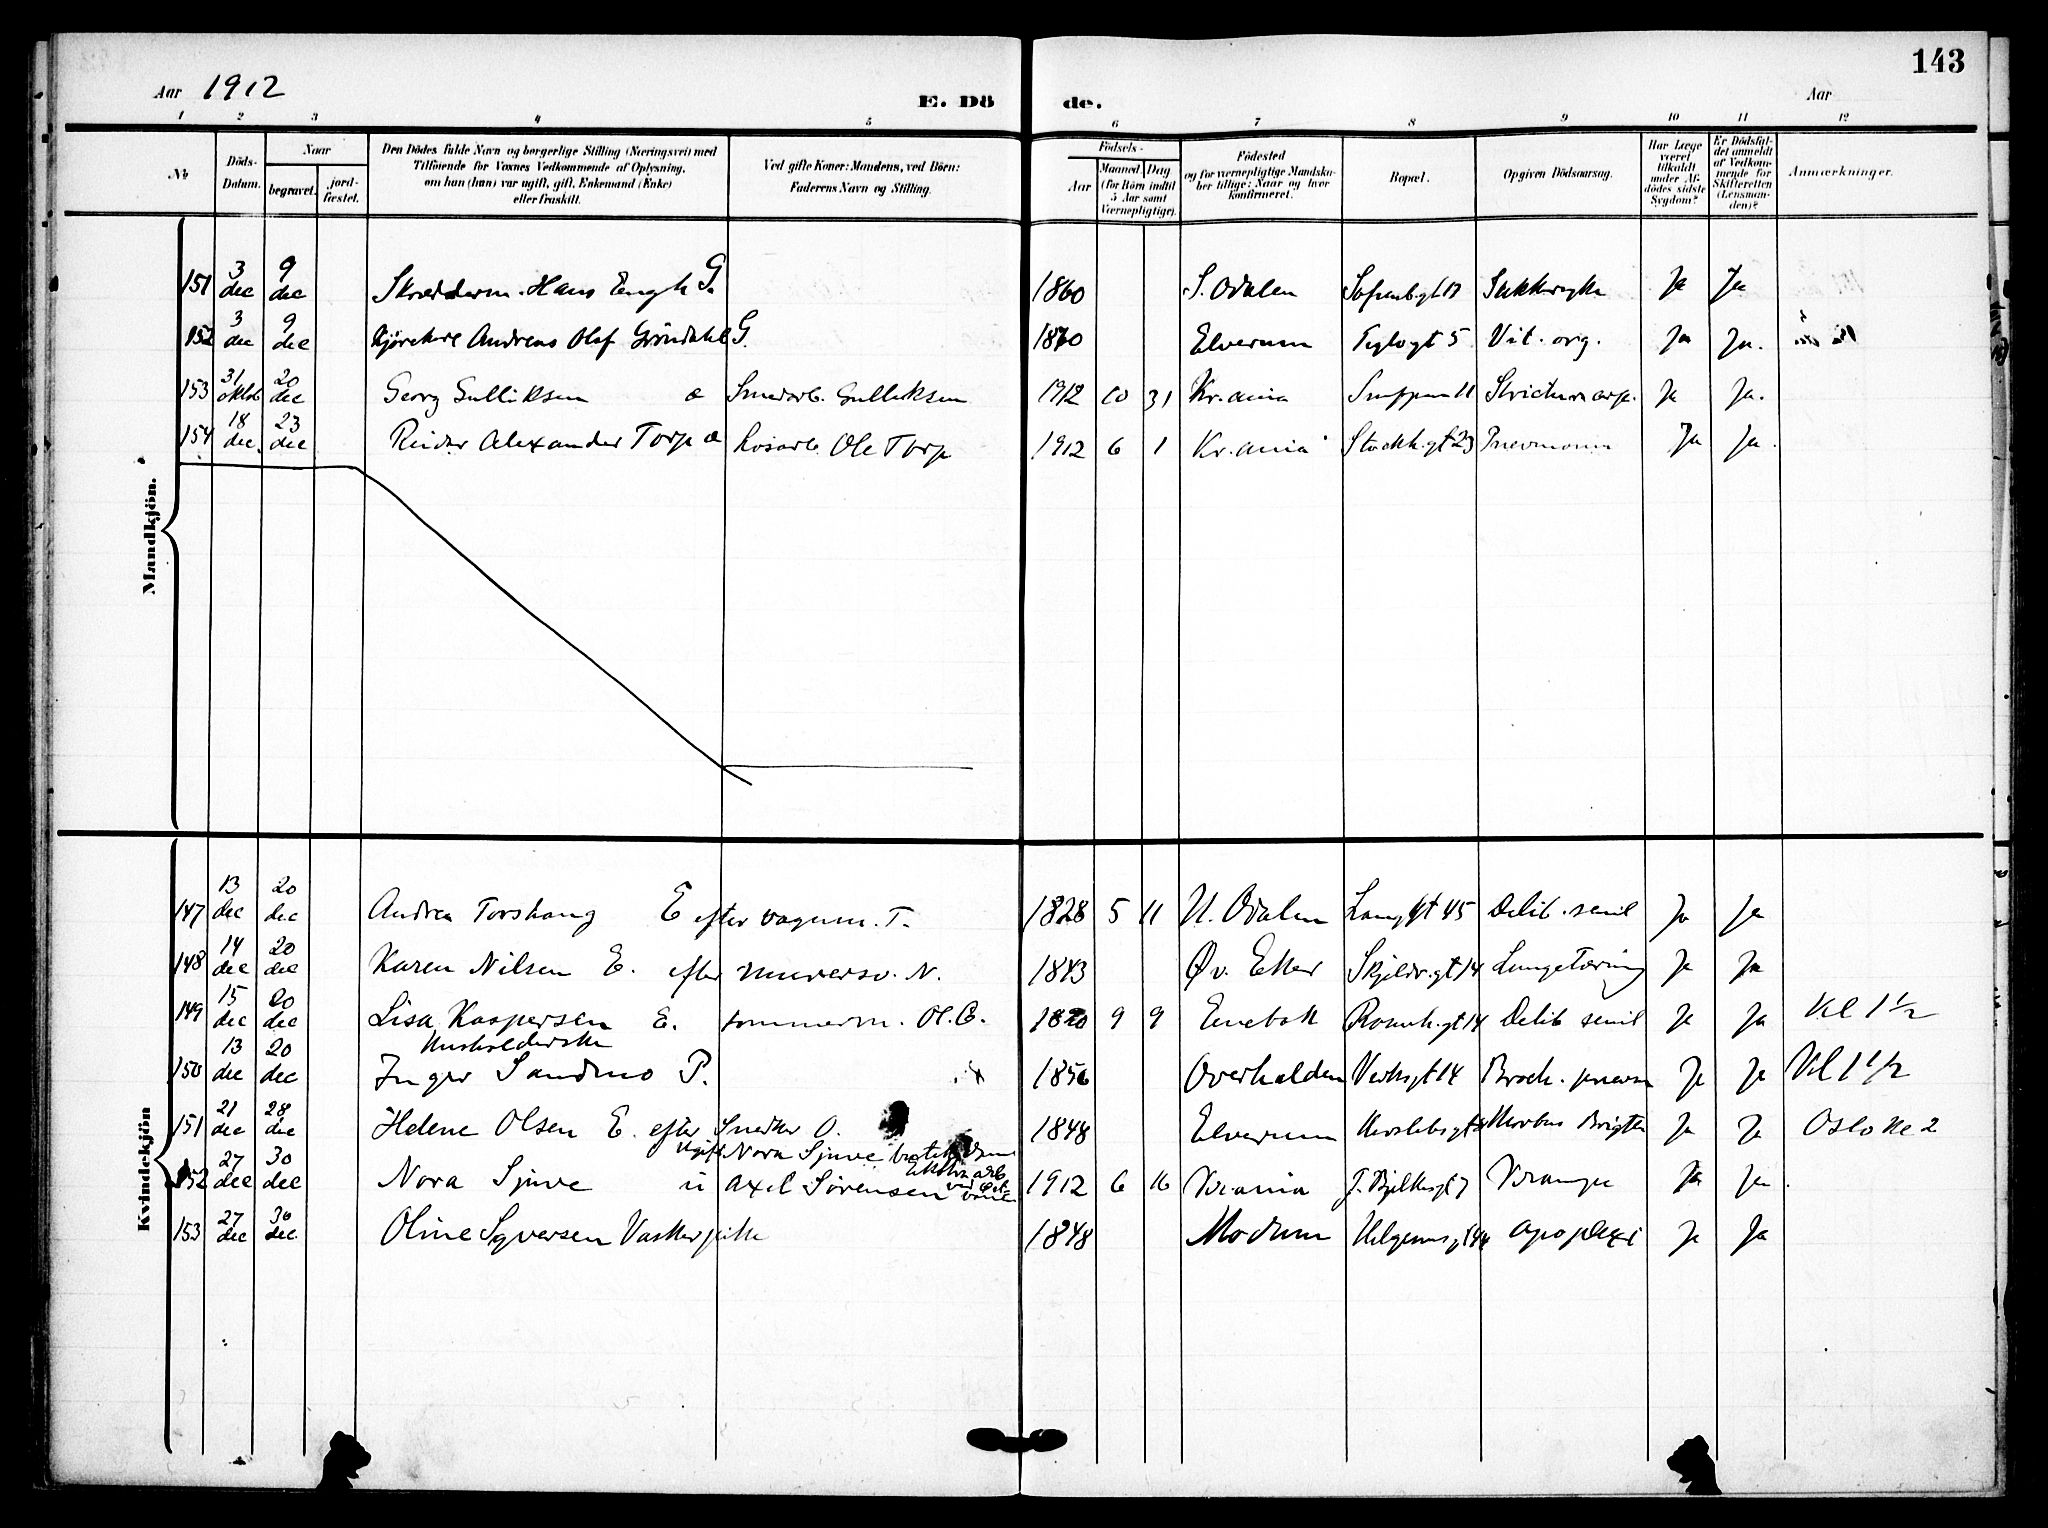 143
Aar 1912
E. Döde.
Aar
1 2 3 4 5 6 7 8 9 10 11 12
No
Döds-Datum.
Naar
begravet.
jord-fæstet.
Den Dödes fulde Navn og borgerlige Stilling (Næringsvei) med
Tilföiende for Voxnes Vedkommende af Oplysning,
om han (hun) var ugift, gift, Enkemand (Enke)
eller fraskilt.
Ved gifte Koner: Mandens, ved Börn:
Faderens Navn og Stilling.
Födsels-
Aar
Maaned. Dag
(for Börn indtil
5 Aar samt
Værnepligtige).
Födested
og for værnepligtige Mandska-
ber tillige: Naar og hvor
konfirmeret.
Bopæl.
Opgiven Dödsaarsag.
Har Læge
været
tilkaldt
under Af-
dödes sidste
Sygdom?
Er Dödsfal-
det anmeldt
af Vedkom-
mende for
Skifteretten
(Lensman-
den)?
Anmærkninger.
Mandkjön.
151 3 dec 9 dec Skrædderm. Hans Engh G. 1860 S. Odalen Ja Ja
152 3 dec 9 dec Andreas Olaf Gröndahl G. Elverum Teglvgt 5 Vit. org. Ja Ja.
153 31 oktob 20 dec Georg Gulliksen Gulliksen 1912 10 31 Kr.ania Ja Ja.
154 18 dec. 23 dec Reidar Alexander Torp Ole Torp 1912 6 1 Kr.ania Stockh.gt 23 Pneumoni Ja Ja.
Kvindekjön
147 13 dec 20 dec Andrea Torshaug E efter vognm. T. 1828 5 11 N. Odalen Langgt 45 Debil. senil Ja Ja
148 14 dec 20 dec Karen Nilsen E. efter murersv. N. 1843 Øv. Eker Skjeldr.gt 14 Lungetæring Ja Ja
149 15 dec 20 dec Lisa Kaspersen E. tömmerm. Ol. 1820 9 9 Enebak Rosenh.gt 14 Debil senil Ja Ja Kl 1 1/2
Husholderske
150 13 dec 20 dec Inger Sandmo P. 1856 Overhalden Verksgt 14 Bronch. pneum Ja Ja Kl 1 1/2
151 21 dec 28 dec Helene Olsen E. efter Snedker O. 1848 Elverum Herslebsgt Morbus Brigtii Ja Ja Oslo Kl 2
Ugift Nora Sjuve
152 27 dec 30 dec Nora Sjuve u Axel Sörensen 1912 6 16 Kr.ania J. Bjelkesgt 7 Krampe Ja Ja.
153 27 dec 30 dec. Oline Syversen Vaskerpike 1848 Modum Helgesensgt 44 apoplexi Ja Ja